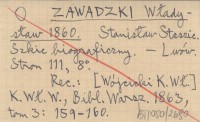 O ZAWADZKI Włady-
sław 1860. Stanisław Staszic.
Szkic biograficzny. — Lwów.
Stron 111, 8°.
Rec.: [Wójcicki K.Wł.]
K.Wł.W., Bibl. Warsz. 1863,
tom 3: 159-160.